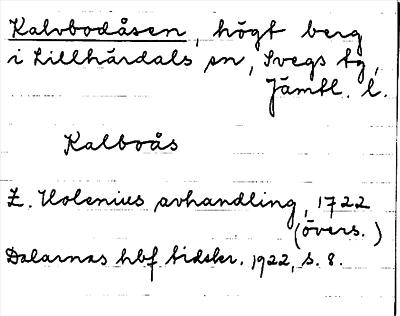 Kalvbodåsen, högt berg
i Lillhärdals sn, Svegs tg,
Jämtl. l.
Kalboås
Z. Holenius avhandling, 1722
(övers.)
Dalarnas hbf tidskr. 1922, s. 8.